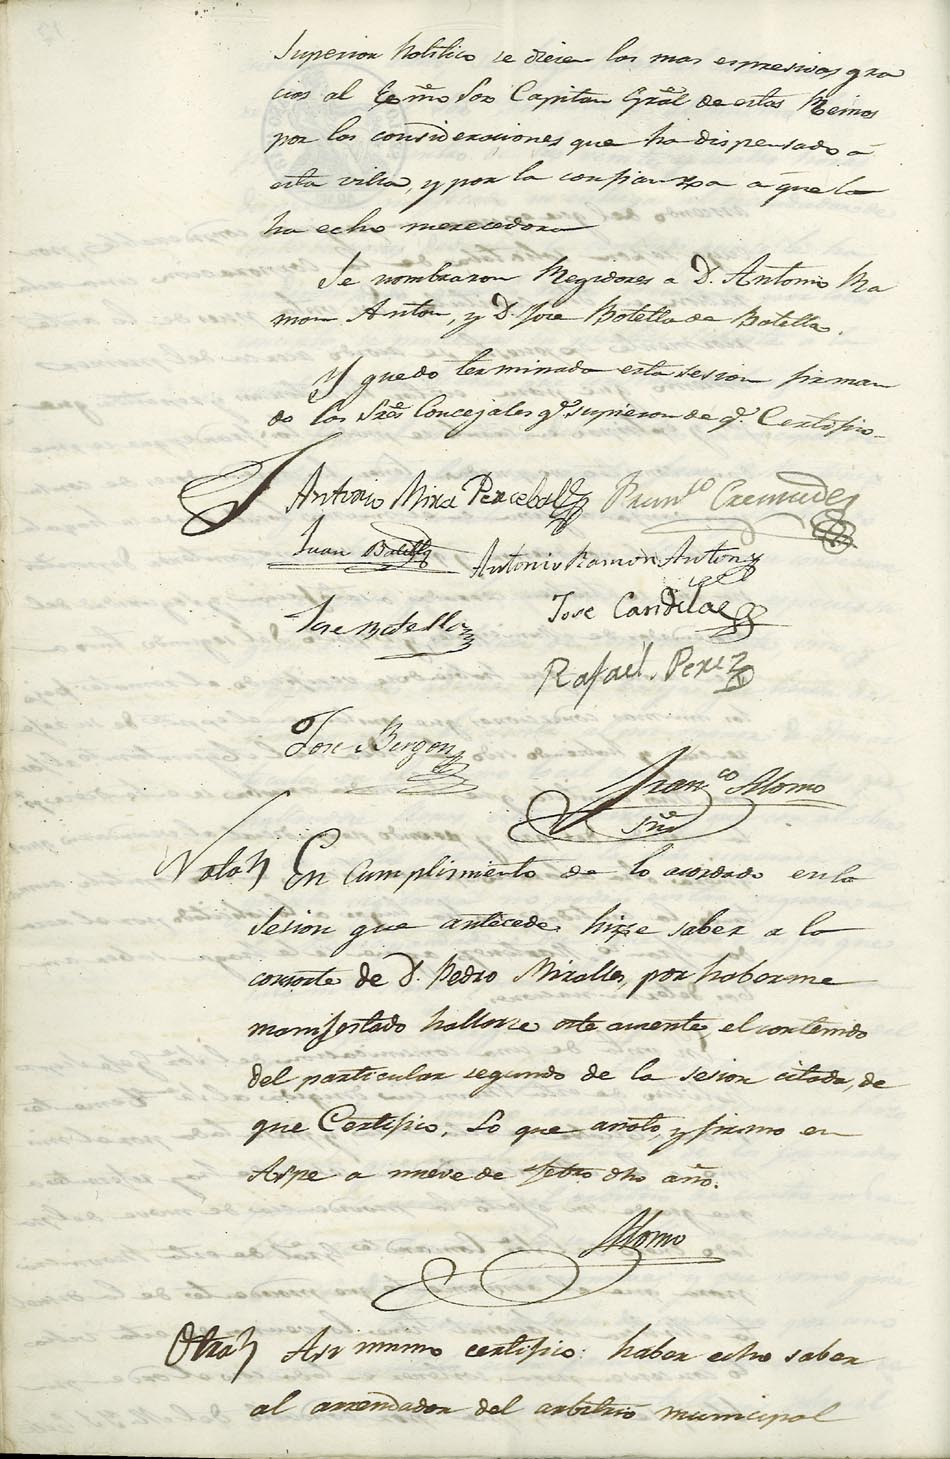 Superior Politico se diesen las mas espresivas gra
cias al Exmo Sor Capitan Gral de estos Reinos
por las consideraciones que ha dispensado a
esta villa, y por la confianza a que la
ha echo merecedora
Se nombraron Regidores a D. Antonio Ra
mon Anton, y D. Jose Botella de Botella.
Y quedo terminada esta sesion firman
do los Sres Concejales q.e supieron de q.e Certifico
Antonio Mira Perceval Fran.co Cremades
Juan Botella Antonio Ramon Anton
Jose Botella Jose Candela
Rafael Perez
Jose Burgon
Fran.co Alomo
Srio
Nota En Cumplimiento de lo acordado en la
Sesion que antecede hize saber a la
consorte de D. Pedro Miralles, por haberme
manifestado hallarse este ausente, el contenido
del particular segundo de la sesion citada, de
que Certifico, Lo que anoto, y firmo en
Aspe a nueve de Febro dho año.
Alomo
Otra Asi mismo certifico: haber echo saber
al arrendador del arbitrio municipal